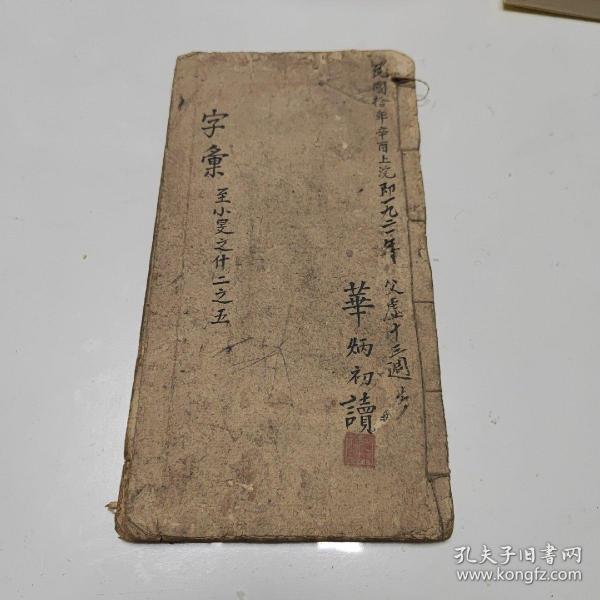 民國拾年辛酉上浣即一九二一年父虚十三週歲
華炳初讀
字彙
至小旻之什二之五
孔夫子旧书网
www.kongfz.com